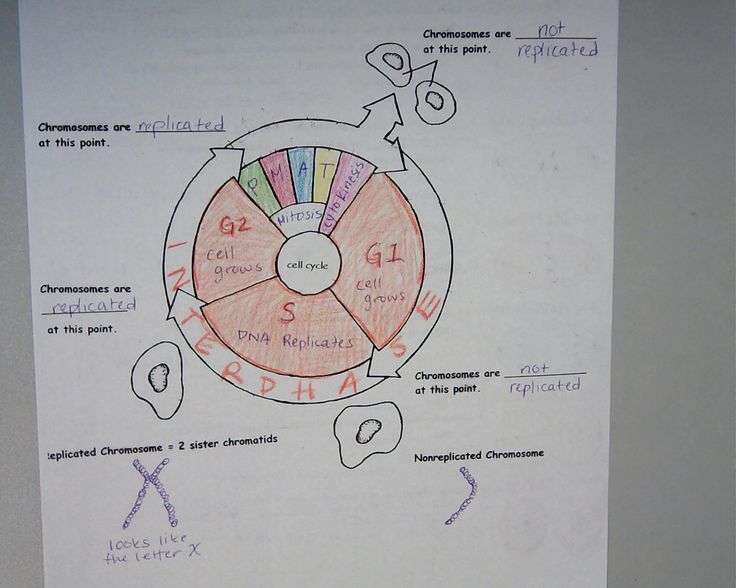 Chromosomes are not
at this point. replicated
Chromosomes are replicated
at this point.
P M A T Cytokinesis
Mitosis
G2
cell
grows
cell cycle
G1
cell
grows
S
DNA Replicates
INTERPHASE
Chromosomes are
replicated
at this point.
Chromosomes are not
at this point. replicated
eplicated Chromosome = 2 sister chromatids
looks like
the letter X
Nonreplicated Chromosome